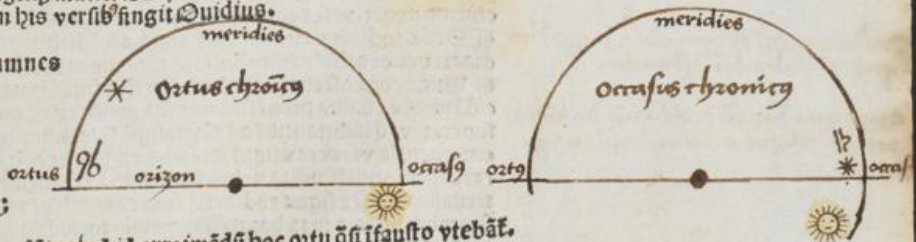 n his versib⁹ fingit Ouidius.
meridies
umnes
ortus chroīcꝰ
ortus
orizon
occasꝰ
meridies
occasus chronicꝰ
ortꝰ
occas
hoc ortu q̄si īfausto vtebāt.